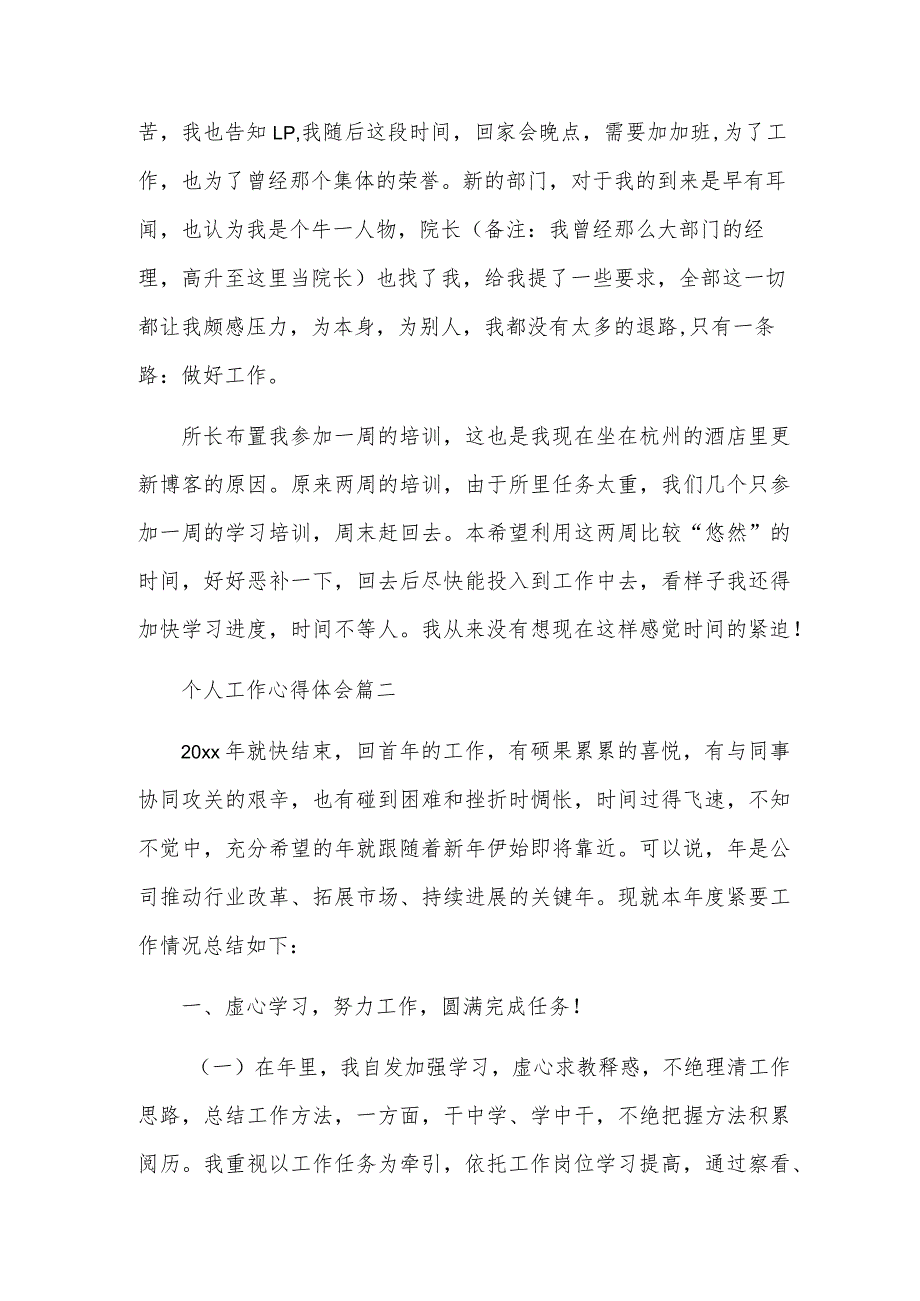 苦，我也告知 LP,我随后这段时间，回家会晚点，需要加加班,为了工
作，也为了曾经那个集体的荣誉。新的部门，对于我的到来是早有耳
闻，也认为我是个牛一人物，院长（备注：我曾经那么大部门的经
理，高升至这里当院长）也找了我，给我提了一些要求，全部这一切
都让我颇感压力，为本身，为别人，我都没有太多的退路,只有一条
路：做好工作。
所长布置我参加一周的培训，这也是我现在坐在杭州的酒店里更
新博客的原因。原来两周的培训，由于所里任务太重，我们几个只参
加一周的学习培训，周末赶回去。本希望利用这两周比较“悠然”的
时间，好好恶补一下，回去后尽快能投入到工作中去，看样子我还得
加快学习进度，时间不等人。我从来没有想现在这样感觉时间的紧迫！
个人工作心得体会篇二
20xx 年就快结束，回首年的工作，有硕果累累的喜悦，有与同事
协同攻关的艰辛，也有碰到困难和挫折时惆怅，时间过得飞速，不知
不觉中，充分希望的年就跟随着新年伊始即将靠近。可以说，年是公
司推动行业改革、拓展市场、持续进展的关键年。现就本年度紧要工
作情况总结如下：
一、虚心学习，努力工作，圆满完成任务！
（一）在年里，我自发加强学习，虚心求教释惑，不绝理清工作
思路，总结工作方法，一方面，干中学、学中干，不绝把握方法积累
阅历。我重视以工作任务为牵引，依托工作岗位学习提高，通过察看、